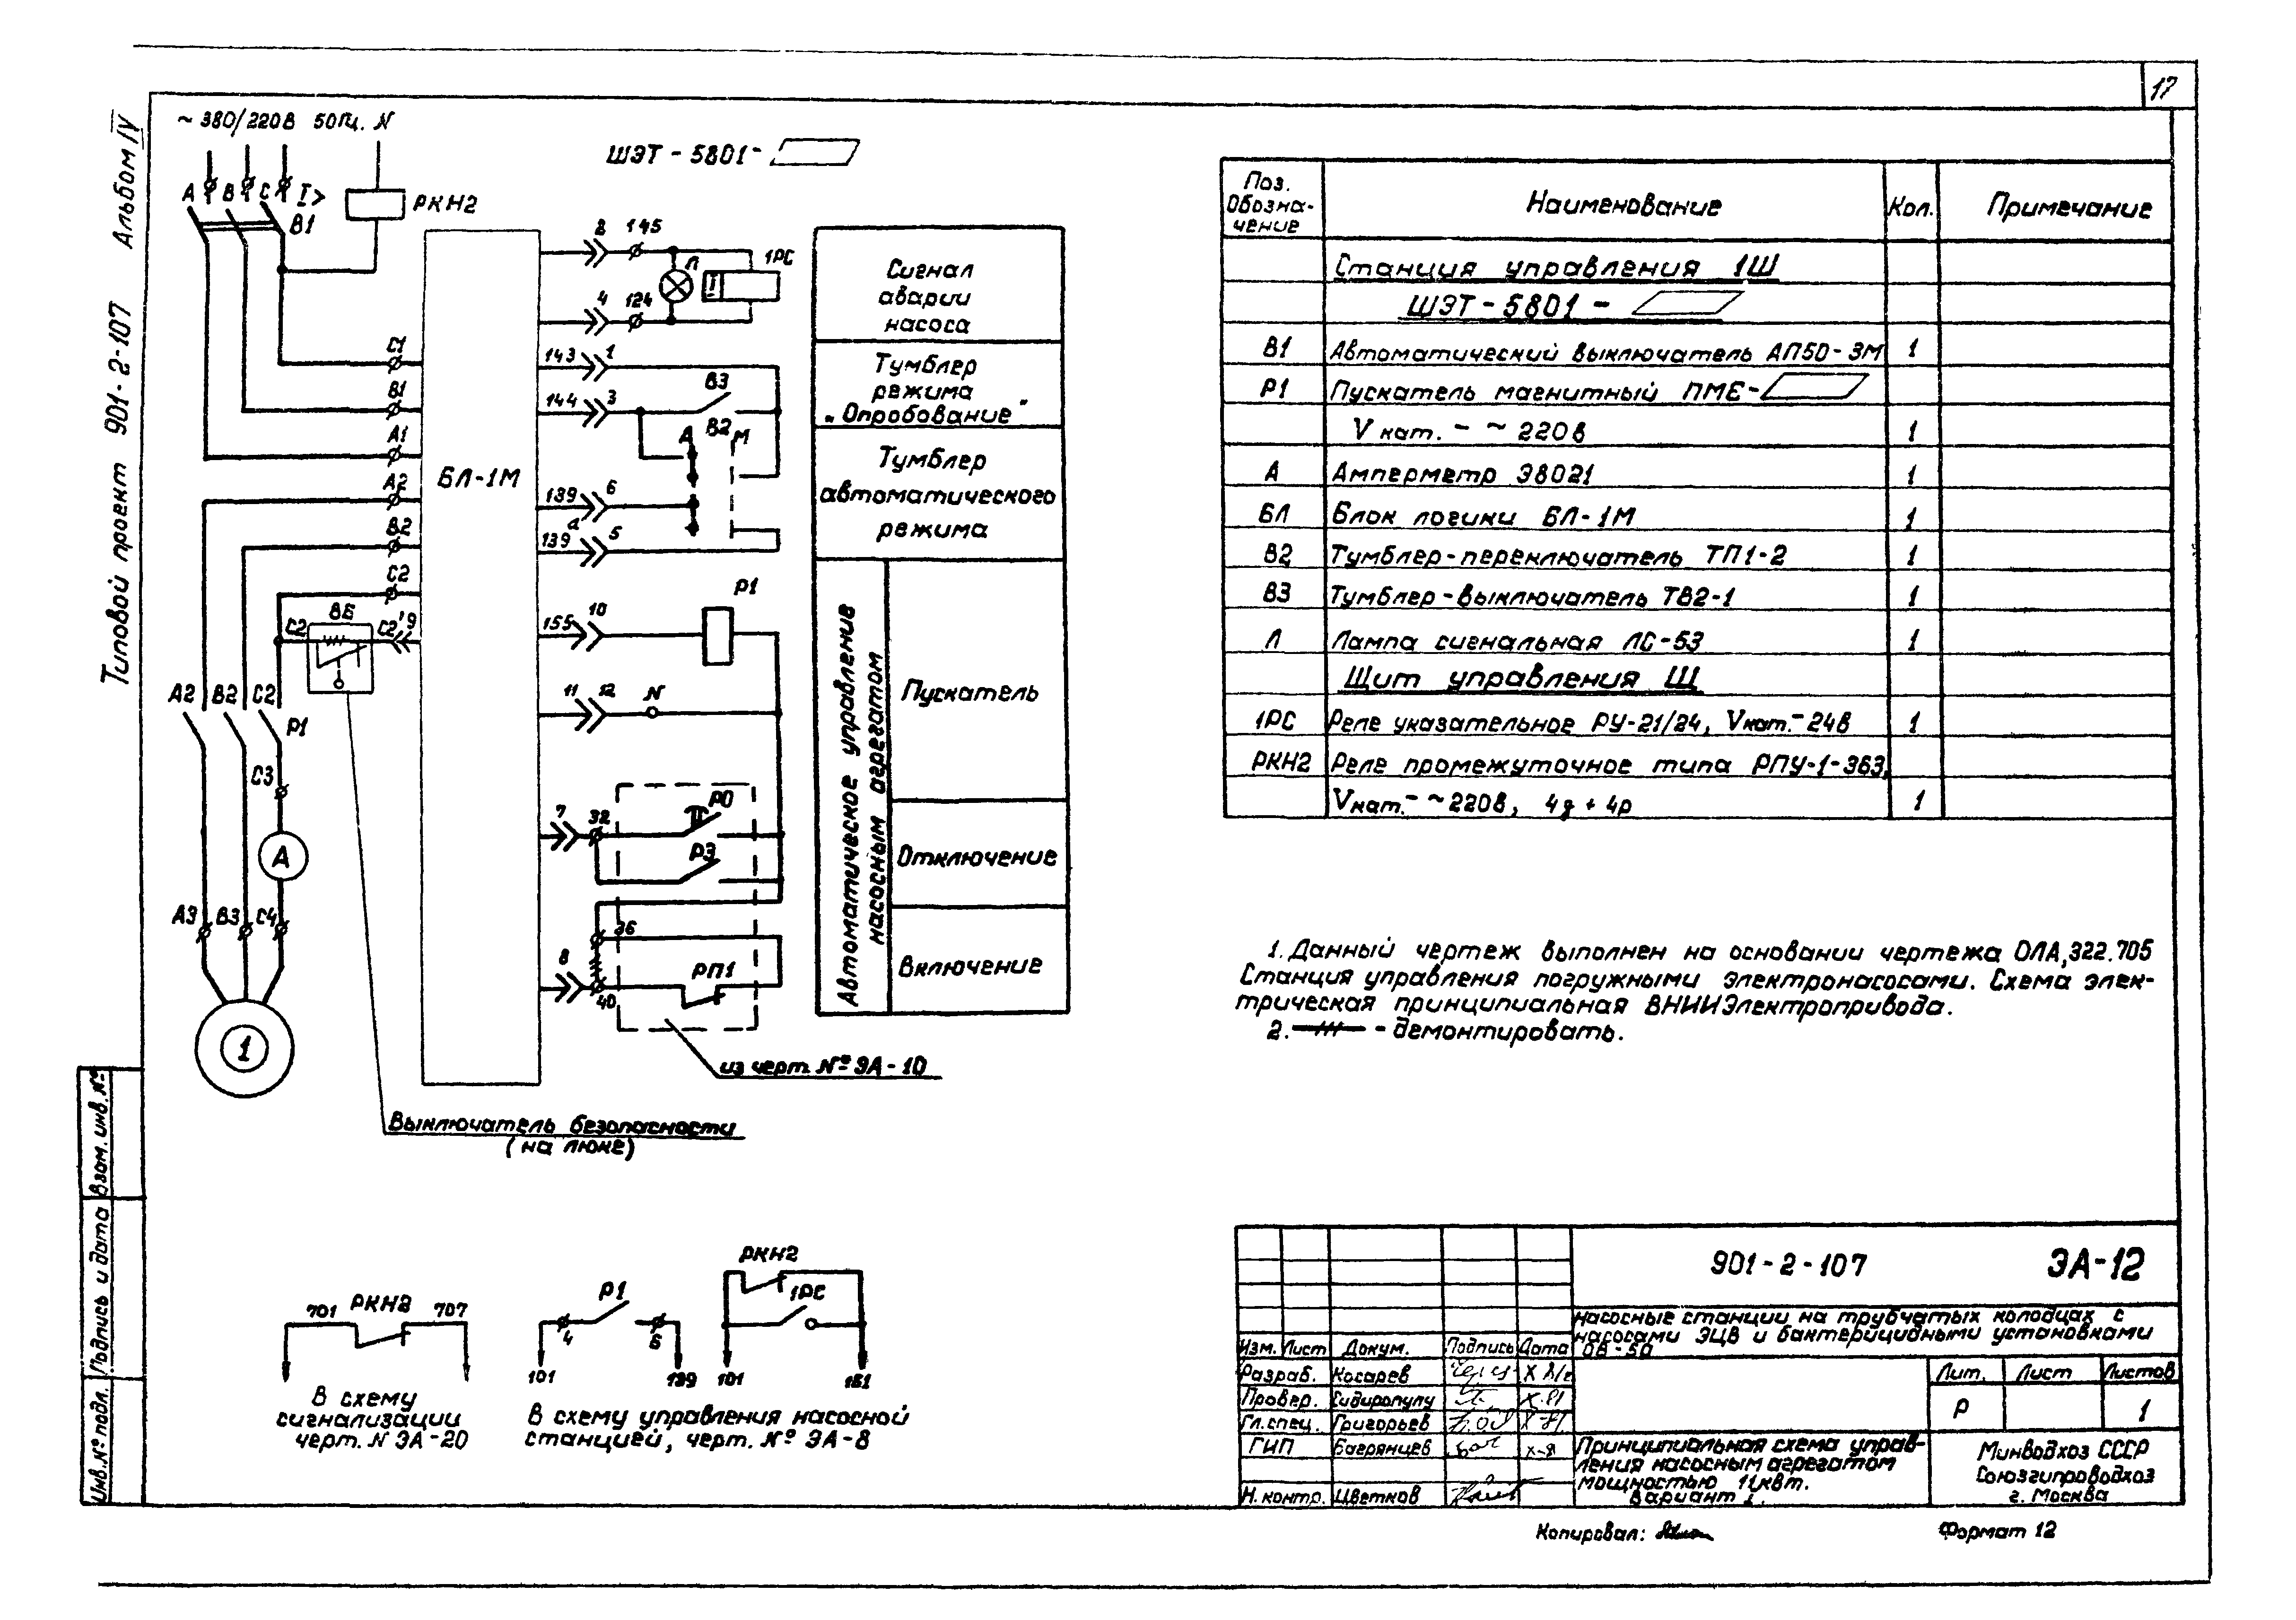 17
Типовой проект 901-2-107 Альбом IV
~ 380/220в 50Гц. N
ШЭТ-5801-
А В С I>
В1
РКН2
С1
В1
А1
А2
В2
С2
БЛ-1М
2 145
Л 1РС
I
4 124
143 1
144 3
В3
В2
А М
139 6
а
139 5
Р1
155 10
11 12 N
7 32
РО
РЗ
36
8
РП1
40
из черт. № ЭА-10
ВБ
С2 С2' 9
А2 В2 С2
Р1
С3
А
А3 В3 С4
1
Выключатель безопасности
(на люке)
Сигнал
аварии
насоса
Тумблер
режима
"Опробование"
Тумблер
автоматического
режима
Автоматическое управление
насосным агрегатом
Пускатель
Отключение
Включение
Поз.
Обозна-
чение
Наименование Кол. Примечание
Станция управления 1Ш
ШЭТ-5801-
В1 Автоматический выключатель АП50-3М 1
Р1 Пускатель магнитный ПМЕ-
Vкат. - ~ 220в 1
А Амперметр Э8021 1
БЛ Блок логики БЛ-1М 1
В2 Тумблер-переключатель ТП1-2 1
В3 Тумблер-выключатель ТВ2-1 1
Л Лампа сигнальная ЛС-53 1
Щит управления Щ
1РС Реле указательное РУ-21/24, Vкат.- 24в 1
РКН2 Реле промежуточное типа РПУ-1-363,
Vкат.- ~220в, 4з + 4р 1
1. Данный чертеж выполнен на основании чертежа ОЛА,322.705
Станция управления погружными электронасосами. Схема элек-
трическая принципиальная ВНИИЭлектропривода.
2. - демонтировать.
701 РКН2 707
В схему
сигнализации
черт. N ЭА-20
Р1
4 6
101 139
РКН2
1РС
101 151
В схему управления насосной
станцией, черт. № ЭА-8
Взам. инв. №
Подпись и дата
Инв. № подл.
901-2-107 ЭА-12
насосные станции на трубчатых колодцах с
насосами ЭЦВ и бактерицидными установками
ОВ-50
Изм. Лист Докум. Подпись Дата
Разраб. Косарев
Провер. Сидиропулу X.81
Гл.спец. Григорьев X-81
ГИП Багрянцев X-81
Н.контр. Цветков
Лит. Лист Листов
Р 1
Принципиальная схема управ-
ления насосным агрегатом
мощностью 11квт.
Вариант 1.
Минводхоз СССР
Союзгипроводхоз
г. Москва
Копировал:
Формат 12